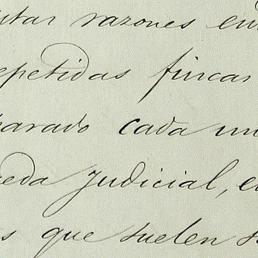 itar razones en
epetidas fincas
parado cada un
eda judicial, e
s que suelen s